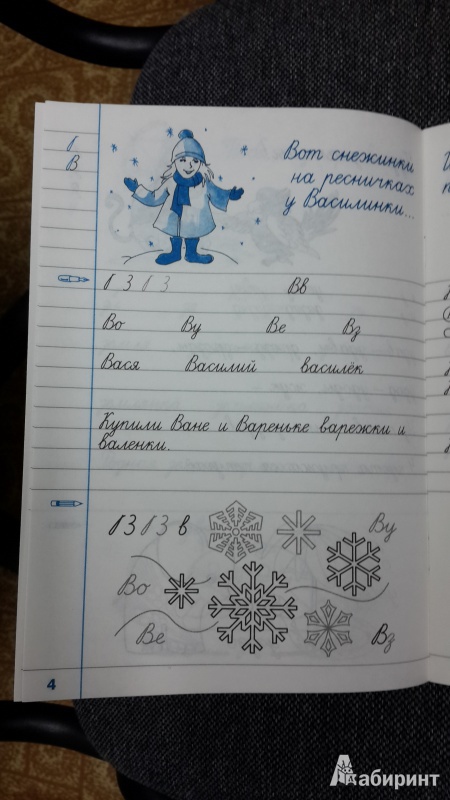 Вот снежинки
на ресничках
у Василинки...
В
Вв
Во Ву Ве Вз
Вася Василий василёк
Купили Ване и Вареньке варежки и
валенки.
в Ву
Во
Ве Вз
4
Лабиринт